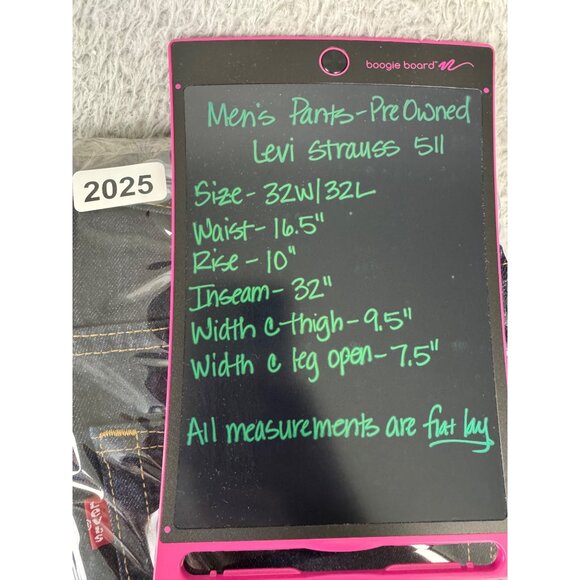 boogie board™
Men's Pants-PreOwned
Levi Strauss 511
2025
Size- 32W/32L
Waist- 16.5"
Rise- 10"
Inseam- 32"
Width @ thigh- 9.5"
Width @ leg open- 7.5"
All measurements are flat lay
LEVI'S